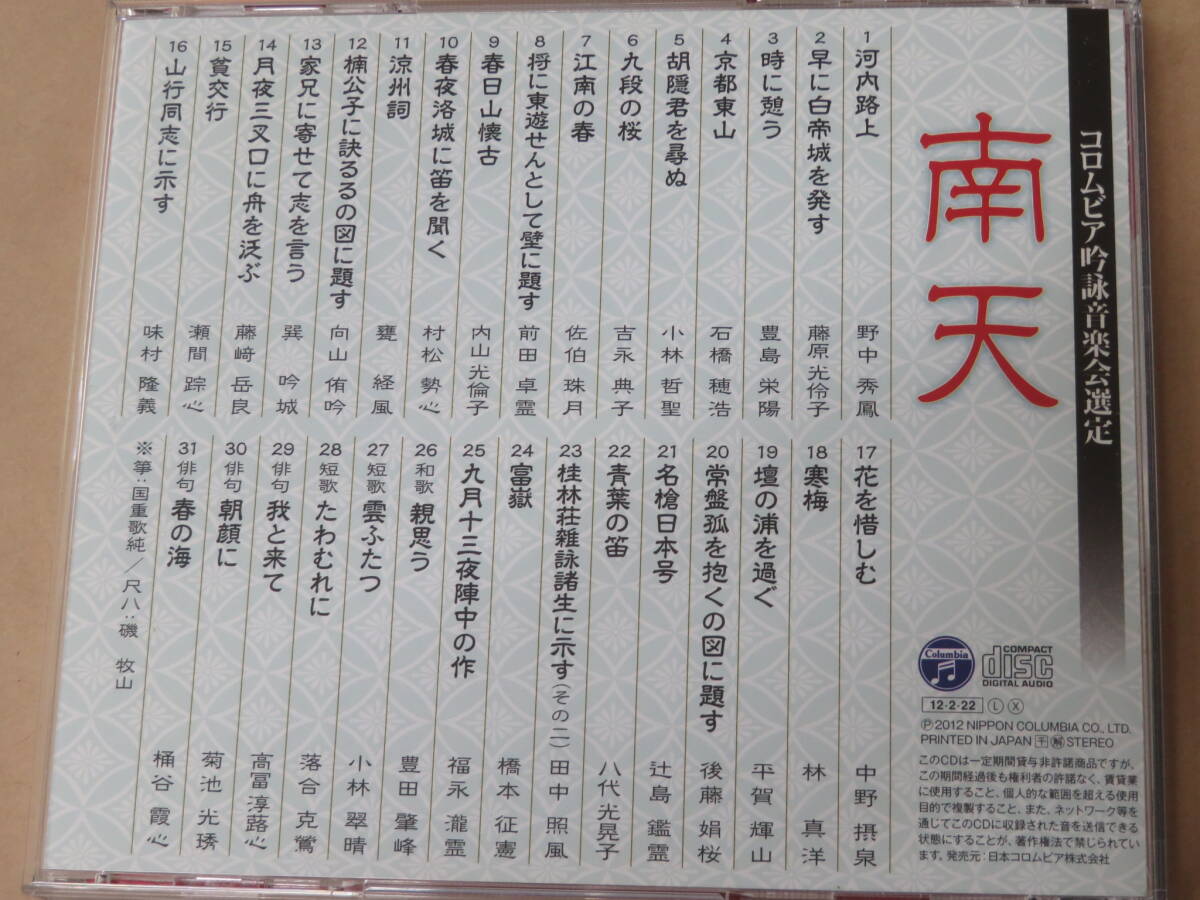 コロムビア吟詠音楽会選定
南天
1 河内路上 野中 秀鳳
2 早に白帝城を発す 藤原 光伶子
3 時に憩う 豊島 栄陽
4 京都東山 石橋 穂浩
5 胡隠君を尋ぬ 小林 哲聖
6 九段の桜 吉永 典子
7 江南の春 佐伯 珠月
8 将に東遊せんとして壁に題す 前田 卓霊
9 春日山懐古 内山 光倫子
10 春夜洛城に笛を聞く 村松 勢心
11 涼州詞 甕 経風
12 楠公子に訣るるの図に題す 向山 侑吟
13 家兄に寄せて志を言う 巽 吟城
14 月夜三叉口に舟を泛ぶ 藤﨑 岳良
15 貧交行 瀬間 踪心
16 山行同志に示す 味村 隆義
17 花を惜しむ 中野 摂泉
18 寒梅 林 真洋
19 壇の浦を過ぐ 平賀 輝山
20 常盤孤を抱くの図に題す 後藤 娟桜
21 名槍日本号 辻島 鑑霊
22 青葉の笛 八代 光晃子
23 桂林荘雑詠諸生に示す(その二) 田中 照風
24 富嶽 橋本 征憲
25 九月十三夜陣中の作 福永 瀧霊
26 和歌 親思う 豊田 肇峰
27 短歌 雲ふたつ 小林 翠晴
28 短歌 たわむれに 落合 克鶯
29 俳句 我と来て 高冨 淳蕗心
30 俳句 朝顔に 菊池 光琇
31 俳句 春の海 桶谷 霞心
※箏:国重歌純/尺八:磯 牧山
Columbia
COMPACT
disc
DIGITAL AUDIO
12・2・22 Ⓛ Ⓧ
Ⓟ2012 NIPPON COLUMBIA CO., LTD.
PRINTED IN JAPAN STEREO
このCDは一定期間貸与非許諾商品ですが、
この期間経過後も権利者の許諾なく、賃貸業
に使用すること、個人的な範囲を超える使用
目的で複製すること、また、ネットワーク等を
通じてこのCDに収録された音を送信できる
状態にすることが、著作権法で禁じられてい
ます。発売元:日本コロムビア株式会社